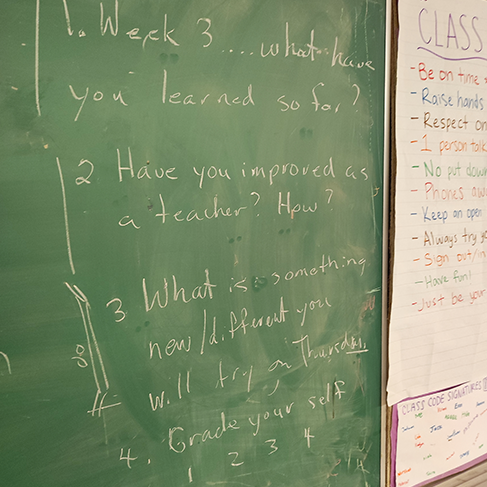 1. Week 3 .... what have
you learned so far?
2 Have you improved as
a teacher? How?
3 What is something
new/different you
will try on Thursday
4. Grade your self
1 2 3 4
CLASS
- Be on time
- Raise hands
- Respect
- 1 person
- No put
- Phones
- Keep an open
- Always try
- Sign out/in
- Have fun!
- Just be your
CLASS CODE SIGNATURES